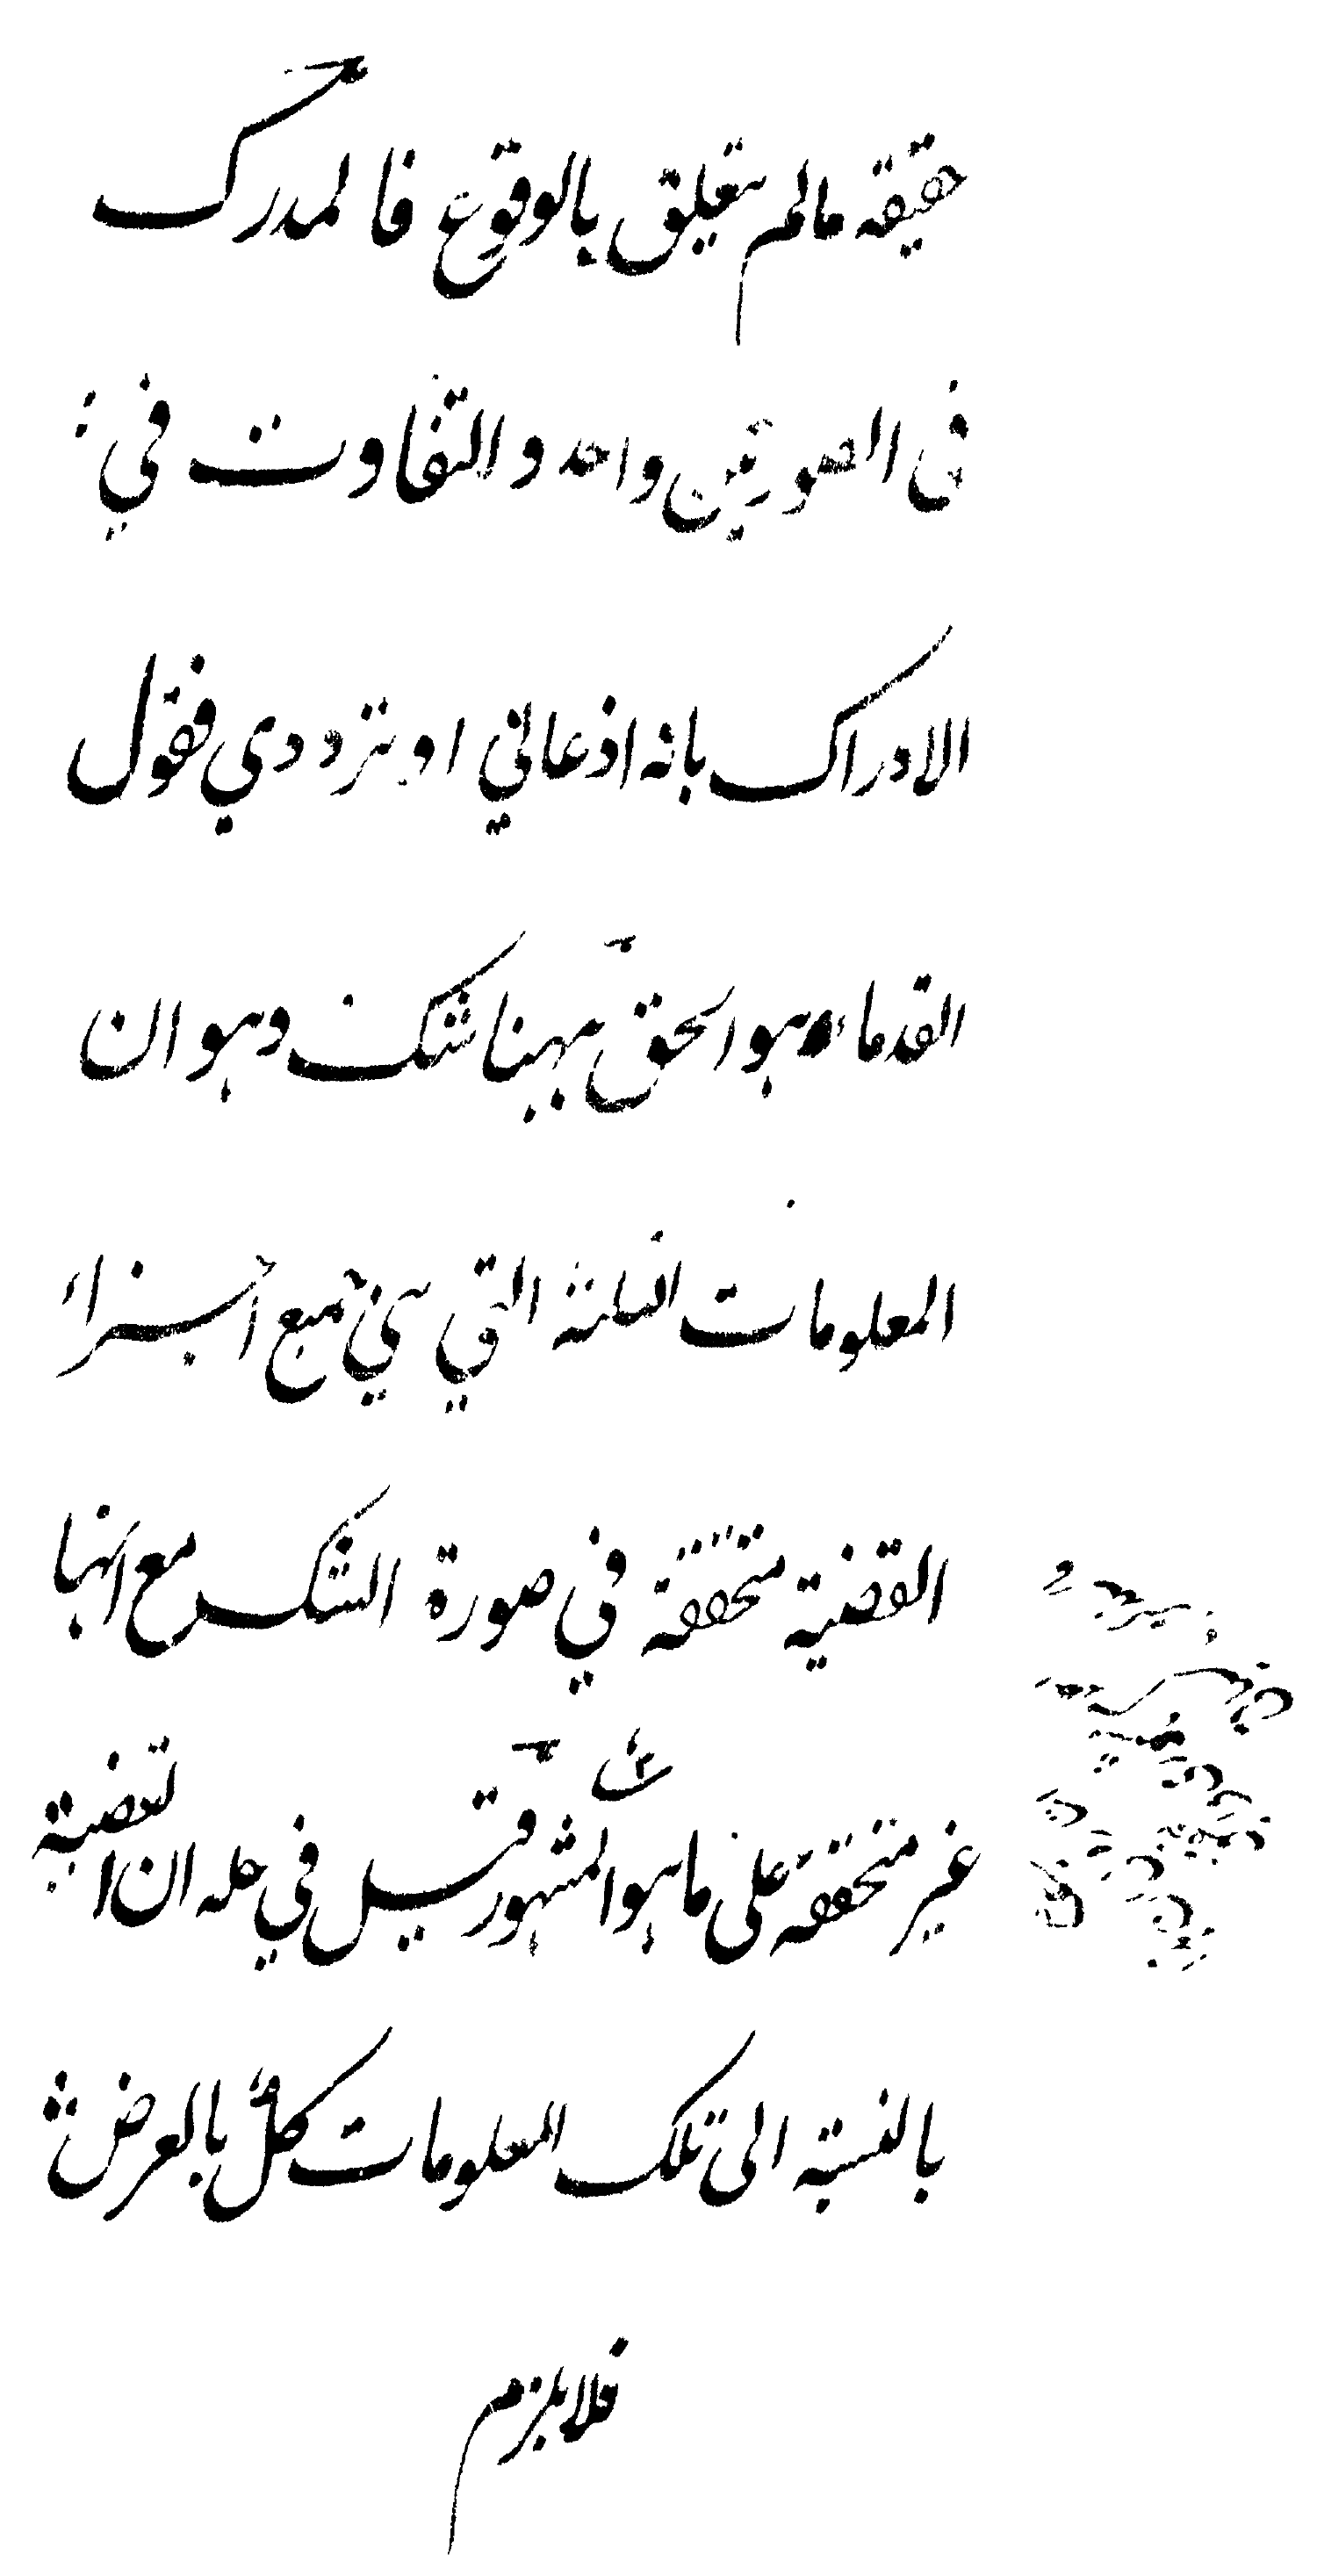 حقيقة مالم يتعلق بالوقوع فالمدرك
فى الصورتين واحد و التفاوت في
الادراك بانه اذعاني او ترددي فقول
القدماء هو الحق ههنا شك وهو ان
المعلومات الثلثة التي هي جميع اجزاء
القضية متحققة في صورة الشك مع انها
غير متحققة على ما هو المشهور قيل في حله ان القضية
بالنسبة الى تلك المعلومات كل بالعرض
فلا يلزم